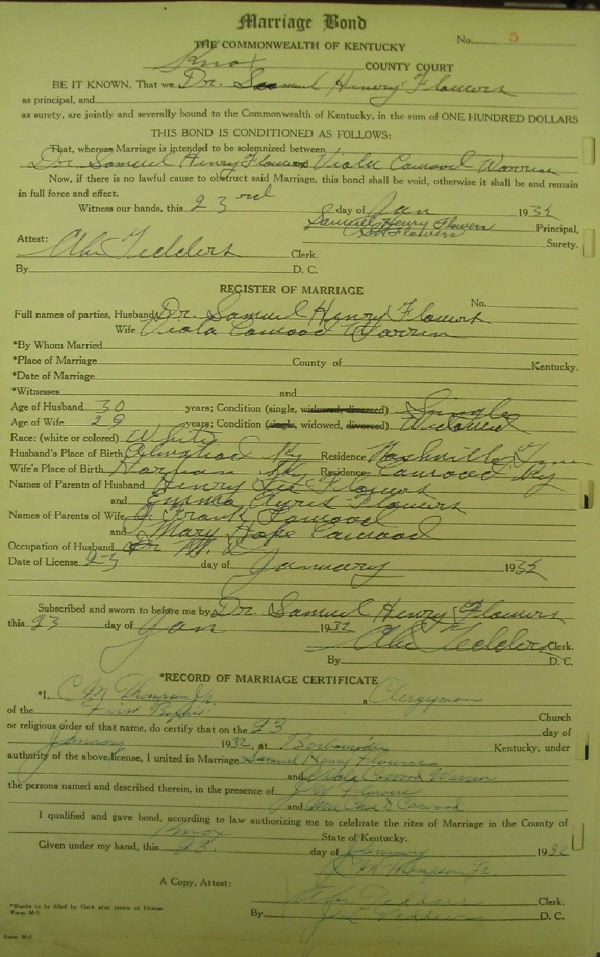 Marriage Bond
THE COMMONWEALTH OF KENTUCKY
No. 5
Knox COUNTY COURT
BE IT KNOWN, That we Dr. Samuel Henry Flowers
as principal, and
as surety, are jointly and severally bound to the Commonwealth of Kentucky, in the sum of ONE HUNDRED DOLLARS
THIS BOND IS CONDITIONED AS FOLLOWS:
That, whereas Marriage is intended to be solemnized between
Dr. Samuel Henry Flowers Viola Cawood Warren
Now, if there is no lawful cause to obstruct said Marriage, this bond shall be void, otherwise it shall be and remain
in full force and effect.
Witness our hands, this 23rd day of Jan 1932
Samuel Henry Flowers Principal,
Flowers Surety.
Attest: Abe Tedders Clerk.
By D. C.
REGISTER OF MARRIAGE
No.
Full names of parties, Husband Dr. Samuel Henry Flowers
Wife Viola Cawood Warren
*By Whom Married
*Place of Marriage County of Kentucky.
*Date of Marriage
*Witnesses and
Age of Husband 30 years; Condition (single, widowed, divorced) Single
Age of Wife 29 years; Condition (single, widowed, divorced) Widowed
Race: (white or colored) White
Husband's Place of Birth Ky Residence Nashville Tenn
Wife's Place of Birth Harlan Ky Residence Cawood Ky
Names of Parents of Husband Henry Flowers
and Emma Flowers
Names of Parents of Wife Frank Cawood
and Mary Hope Cawood
Occupation of Husband
Date of License 23 day of January 1932
Subscribed and sworn to before me by Dr. Samuel Henry Flowers
this 23 day of Jan 1932
Abe Tedders Clerk.
By D. C.
*RECORD OF MARRIAGE CERTIFICATE
*I, C M Thompson Jr. a Clergyman
of the First Baptist Church
or religious order of that name, do certify that on the 23 day of
January 1932, at Barbourville Kentucky, under
authority of the above license, I united in Marriage Samuel Henry Flowers
and Viola Cawood Warren
the persons named and described therein, in the presence of Flowers
and Mrs Cawood
I qualified and gave bond, according to law authorizing me to celebrate the rites of Marriage in the County of
Knox State of Kentucky.
Given under my hand, this 23 day of January 1932
C M Thompson Jr.
A Copy, Attest:
Abe Tedders Clerk.
By Tedders D. C.
*Blanks to be filled by Clerk after return of License
Form M-1
Form M-1